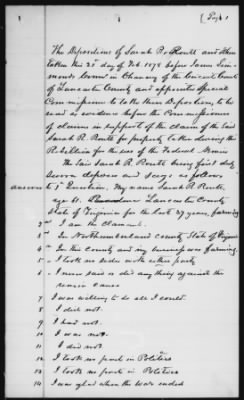 [ Page 1
The Depositions of Sarah R. Routt and others
taken this 21st day of Feb. 1878 before James Sim-
monds Comr in Chancery of the Circuit Court
of Lancaster County and appointed Special
Commissioner to take these Depositions, to be
read as evidence before the Commissioners
of claims in support of the claim of the said
Sarah R. Routt for property taken during the
Rebellion for the use of the Federal Army
The said Sarah R. Routt being first duly
sworn deposes and says as follows
answer to 1st Question, My name Sarah R. Routt,
age 61. Residence Lancaster County
State of Virginia for the last 27 years, farming
2 I am the claimant.
3 In Northumberland county State of Virginia
4 In this county and my business was farming.
5 I took no sides with either party
6 I never said or did any thing against the
union cause
7 I was willing to do all I could.
8 I did not.
9 I had not.
10 I was not.
11 I did not
12 I took no part in Politics
13 I took no part in Politics
14 I was glad when the war ended